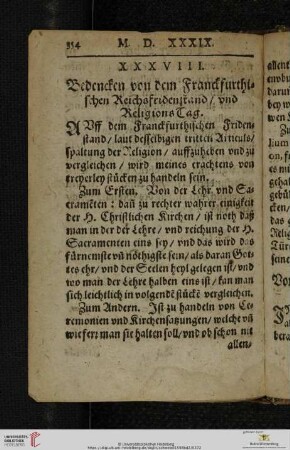 354 M. D. XXXIX.
XXXVIII.
Bedencken von dem Franckfurthi-
schen Reichsfridenstand/ vnd
Religions Tag.
AVff dem Franckfurthischen Friden
stand/ laut desselbigen tritten Articuls/
spaltung der Religion/ auffzuheben vnd zu
vergleichen/ wird meines crachtens von
treyerley stücken zu handeln sein.
Zum Ersten. Von der Lehr vnd Sa-
cramēten: dañ zu rechter wahrer einigkeit
der H. Christlichen Kirchen/ ist noth daß
man in der der Lehre/ vnd reichung der H.
Sacramenten eins sey/ vnd das wird das
fürnemste vñ nöthigste sein/ als daran Got-
tes ehr/ vnd der Seelen heyl gelegen ist/ vnd
wo man der Lehre halben eins ist/ kan man
sich leichtlich in volgendē stückē vergleichen.
Zum Andern. Ist zu handeln von Ce-
remonien vnd Kirchensatzungen/ welche vñ
wiefern man sie halten soll/ vnd ob schon nit
allen/